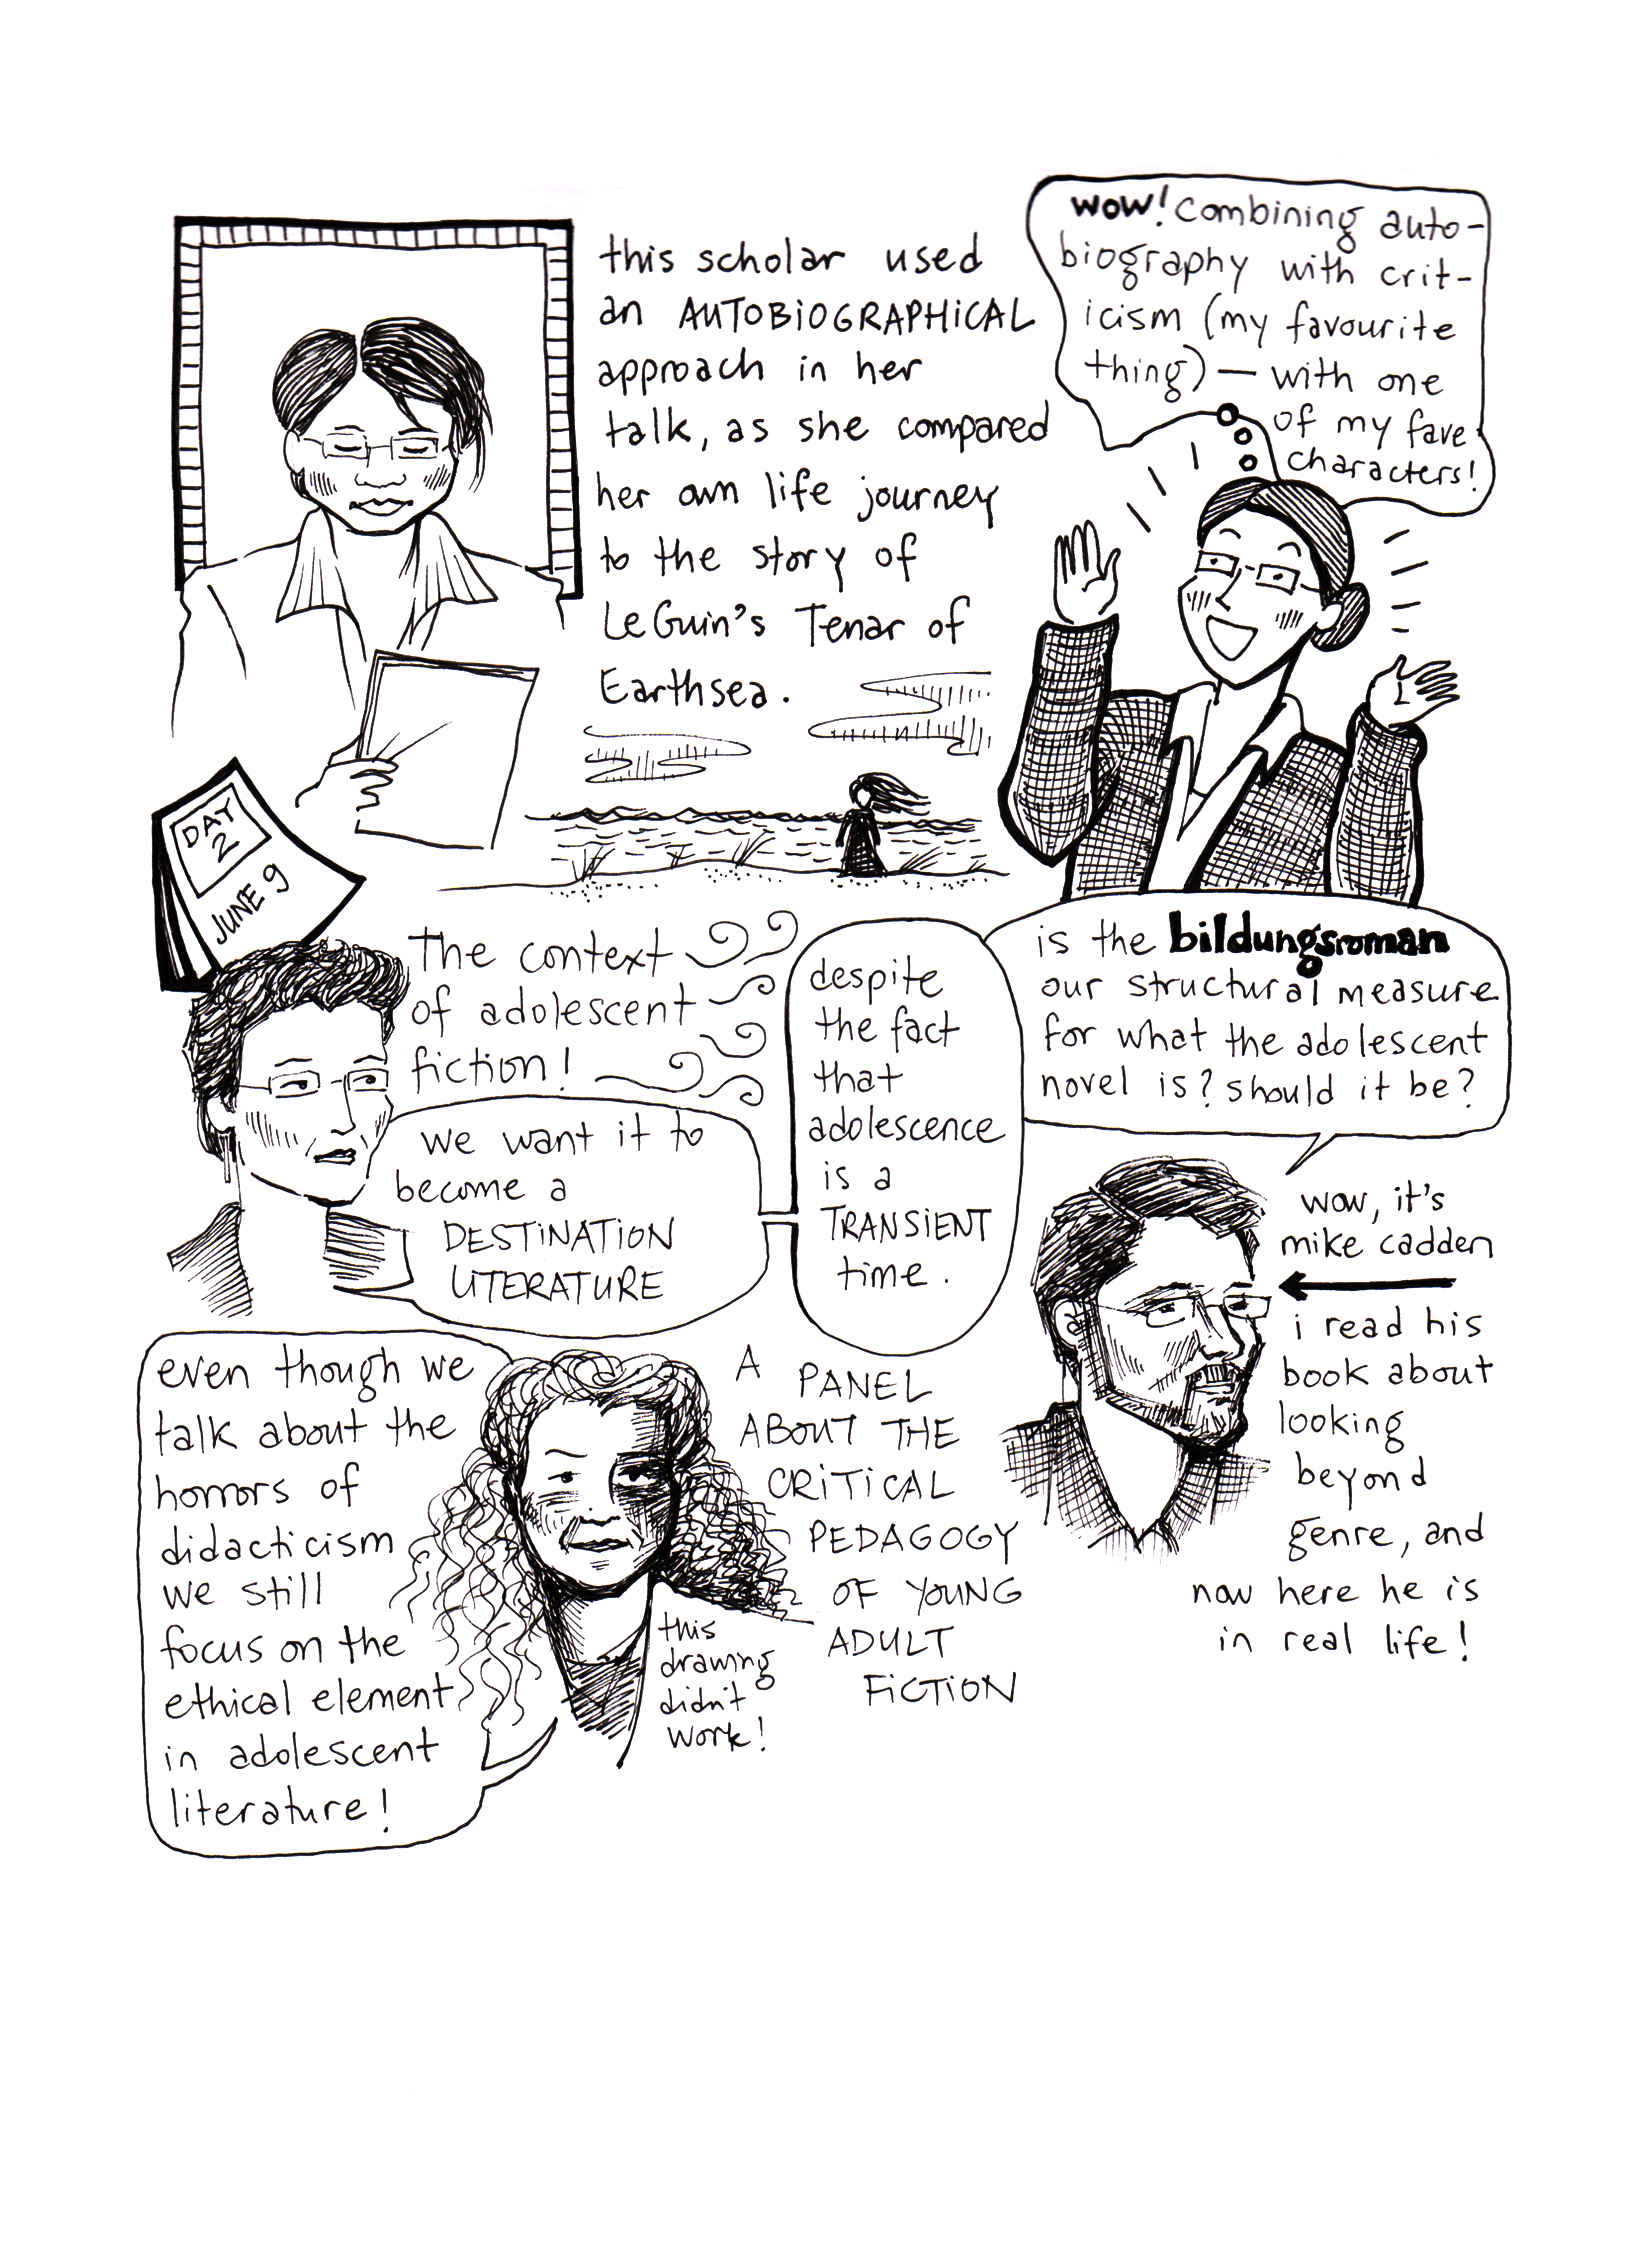 this scholar used
an AUTOBIOGRAPHICAL
approach in her
talk, as she compared
her own life journey
to the story of
LeGuin's Tenar of
Earthsea.
wow! combining auto-
biography with crit-
icism (my favourite
thing) — with one
of my fave
characters!
DAY
2
JUNE 9
The context
of adolescent
fiction!
we want it to
become a
DESTINATION
LITERATURE
despite
the fact
that
adolescence
is a
TRANSIENT
time.
is the bildungsroman
our structural measure
for what the adolescent
novel is? should it be?
wow, it's
mike cadden
i read his
book about
looking
beyond
genre, and
now here he is
in real life!
even though we
talk about the
horrors of
didacticism
we still
focus on the
ethical element
in adolescent
literature!
this
drawing
didn't
work!
A
PANEL
ABOUT THE
CRITICAL
PEDAGOGY
OF YOUNG
ADULT
FICTION